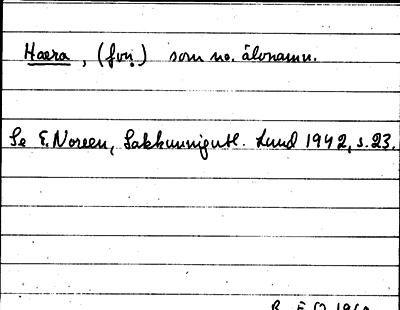 Haera, (fvn.) som no. älvnamn.
Se E. Noreen, Sakkunnigutl. Lund 1942, s. 23.